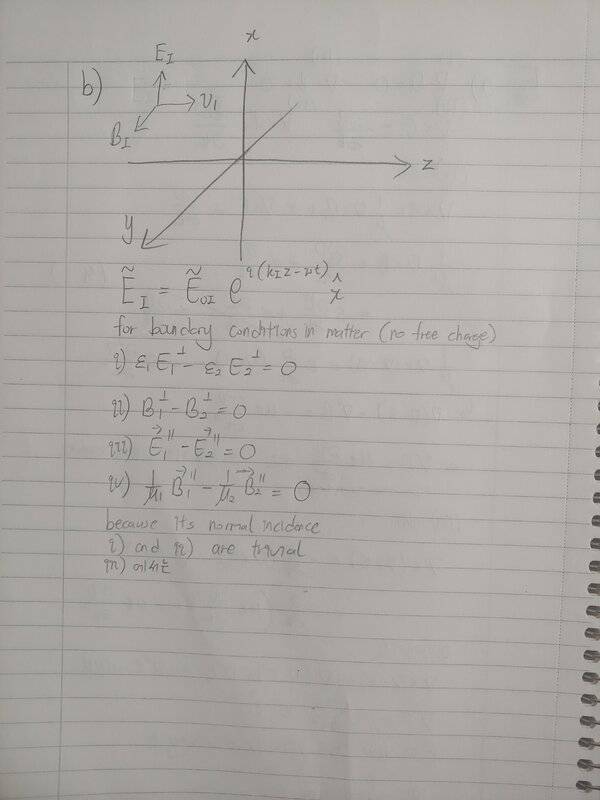 b)
x
E_I
v_1
B_I
z
y
Ẽ_I = Ẽ_{oI} e^{i(k_I z-wt)} x̂
for boundary conditions in matter (no free charge)
i) ε_1 E_1^⊥ - ε_2 E_2^⊥ = 0
ii) B_1^⊥ - B_2^⊥ = 0
iii) E⃗_1^{∥} - E⃗_2^{∥} = 0
iv) 1/μ_1 B⃗_1^{∥} - 1/μ_2 B⃗_2^{∥} = 0
because its normal incidence
i) and ii) are trivial
iii) 에서는